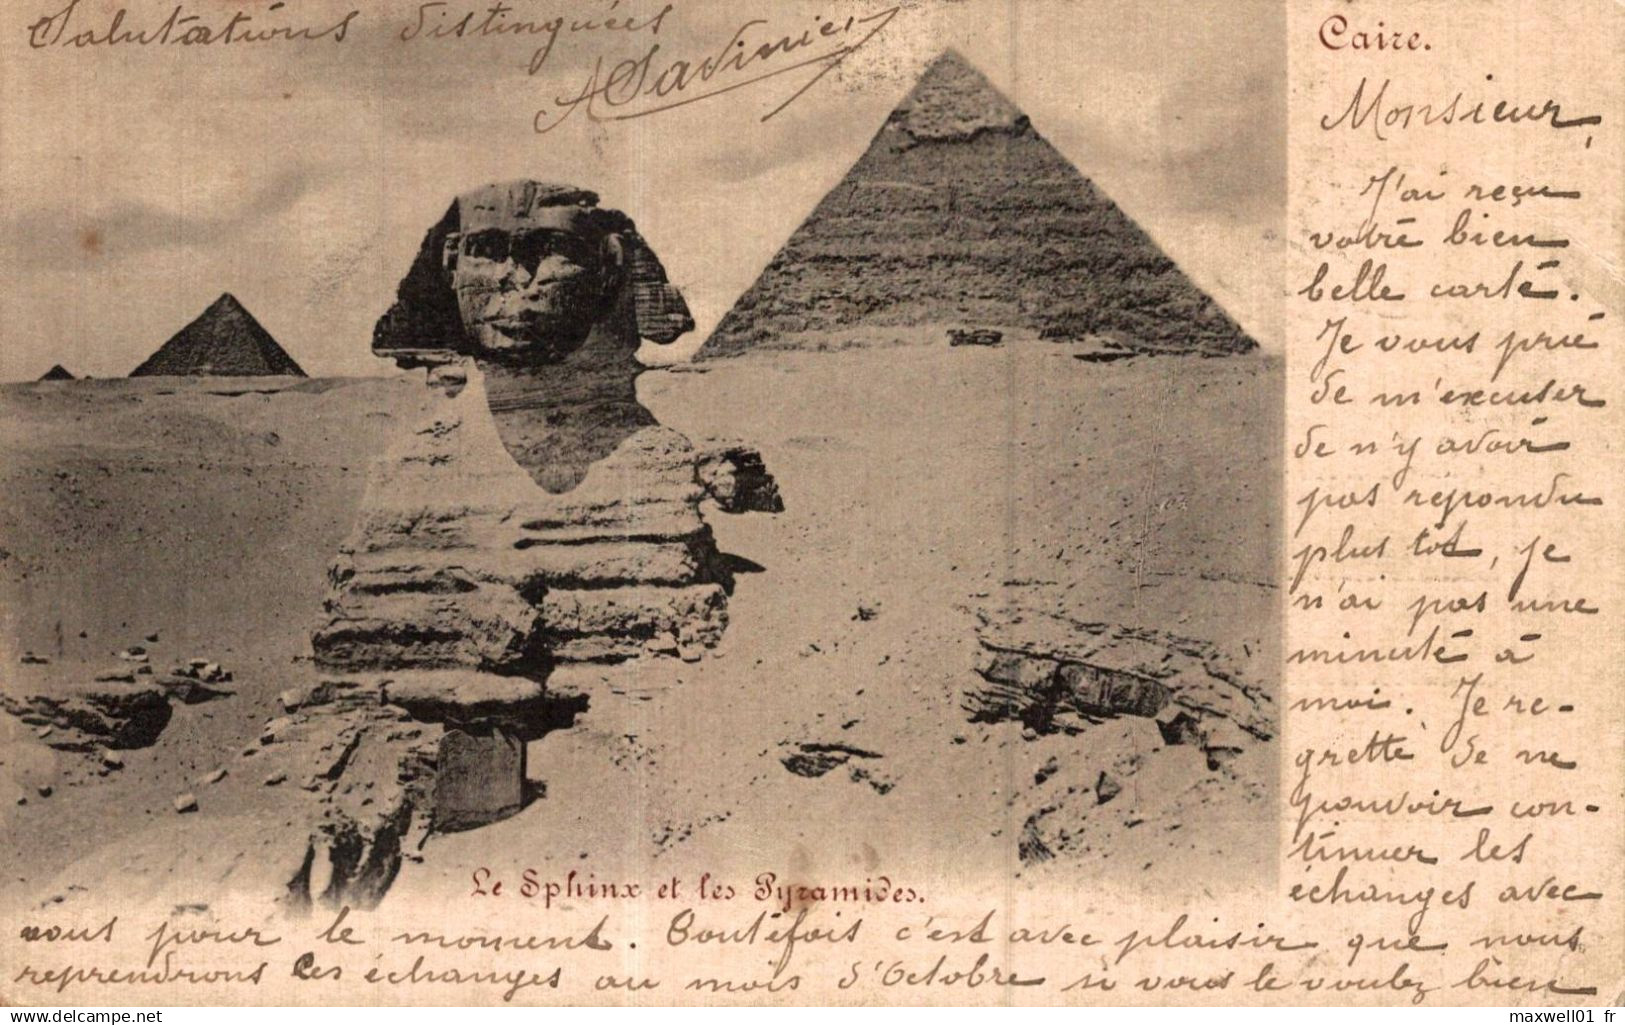 Caire.
Monsieur,
J'ai reçu
votre bien
belle carte.
Je vous prie
de m'excuser
de n'y avoir
pas répondu
plus tot, je
n'ai pas une
minute à
moi. Je re-
grette de ne
pouvoir con-
tinuer les
échanges avec
vous pour le moment. Toutefois c'est avec plaisir que nous
reprendrons les échanges au mois d'Octobre si vous le voulez bien
Salutations distinguées
ASavinier
Le Sphinx et les Pyramides.
maxwell01 fr